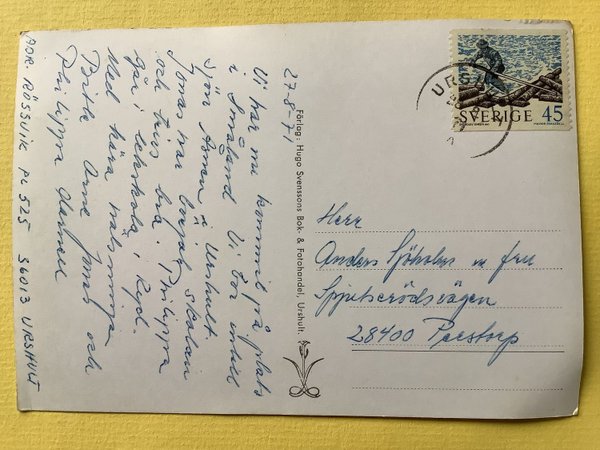 27-8-71
Vi har nu kommit på plats
i Småland Vi bor intill
sjön Åsnen i Urshult.
Jonas har börjat skolan
och trivs bra. Philippa
går i lekskola i Ryd.
Med kära hälsningar
Arne Jonas och
Philippa
ADR. RÖSSVIK PL 525 36013 URSHULT
Förlag: Hugo Svenssons Bok- & Fotohandel, Urshult.
SVERIGE 45
Herr
Anders Sjöholm m fru
Spjutserödsvägen
28400 Perstorp